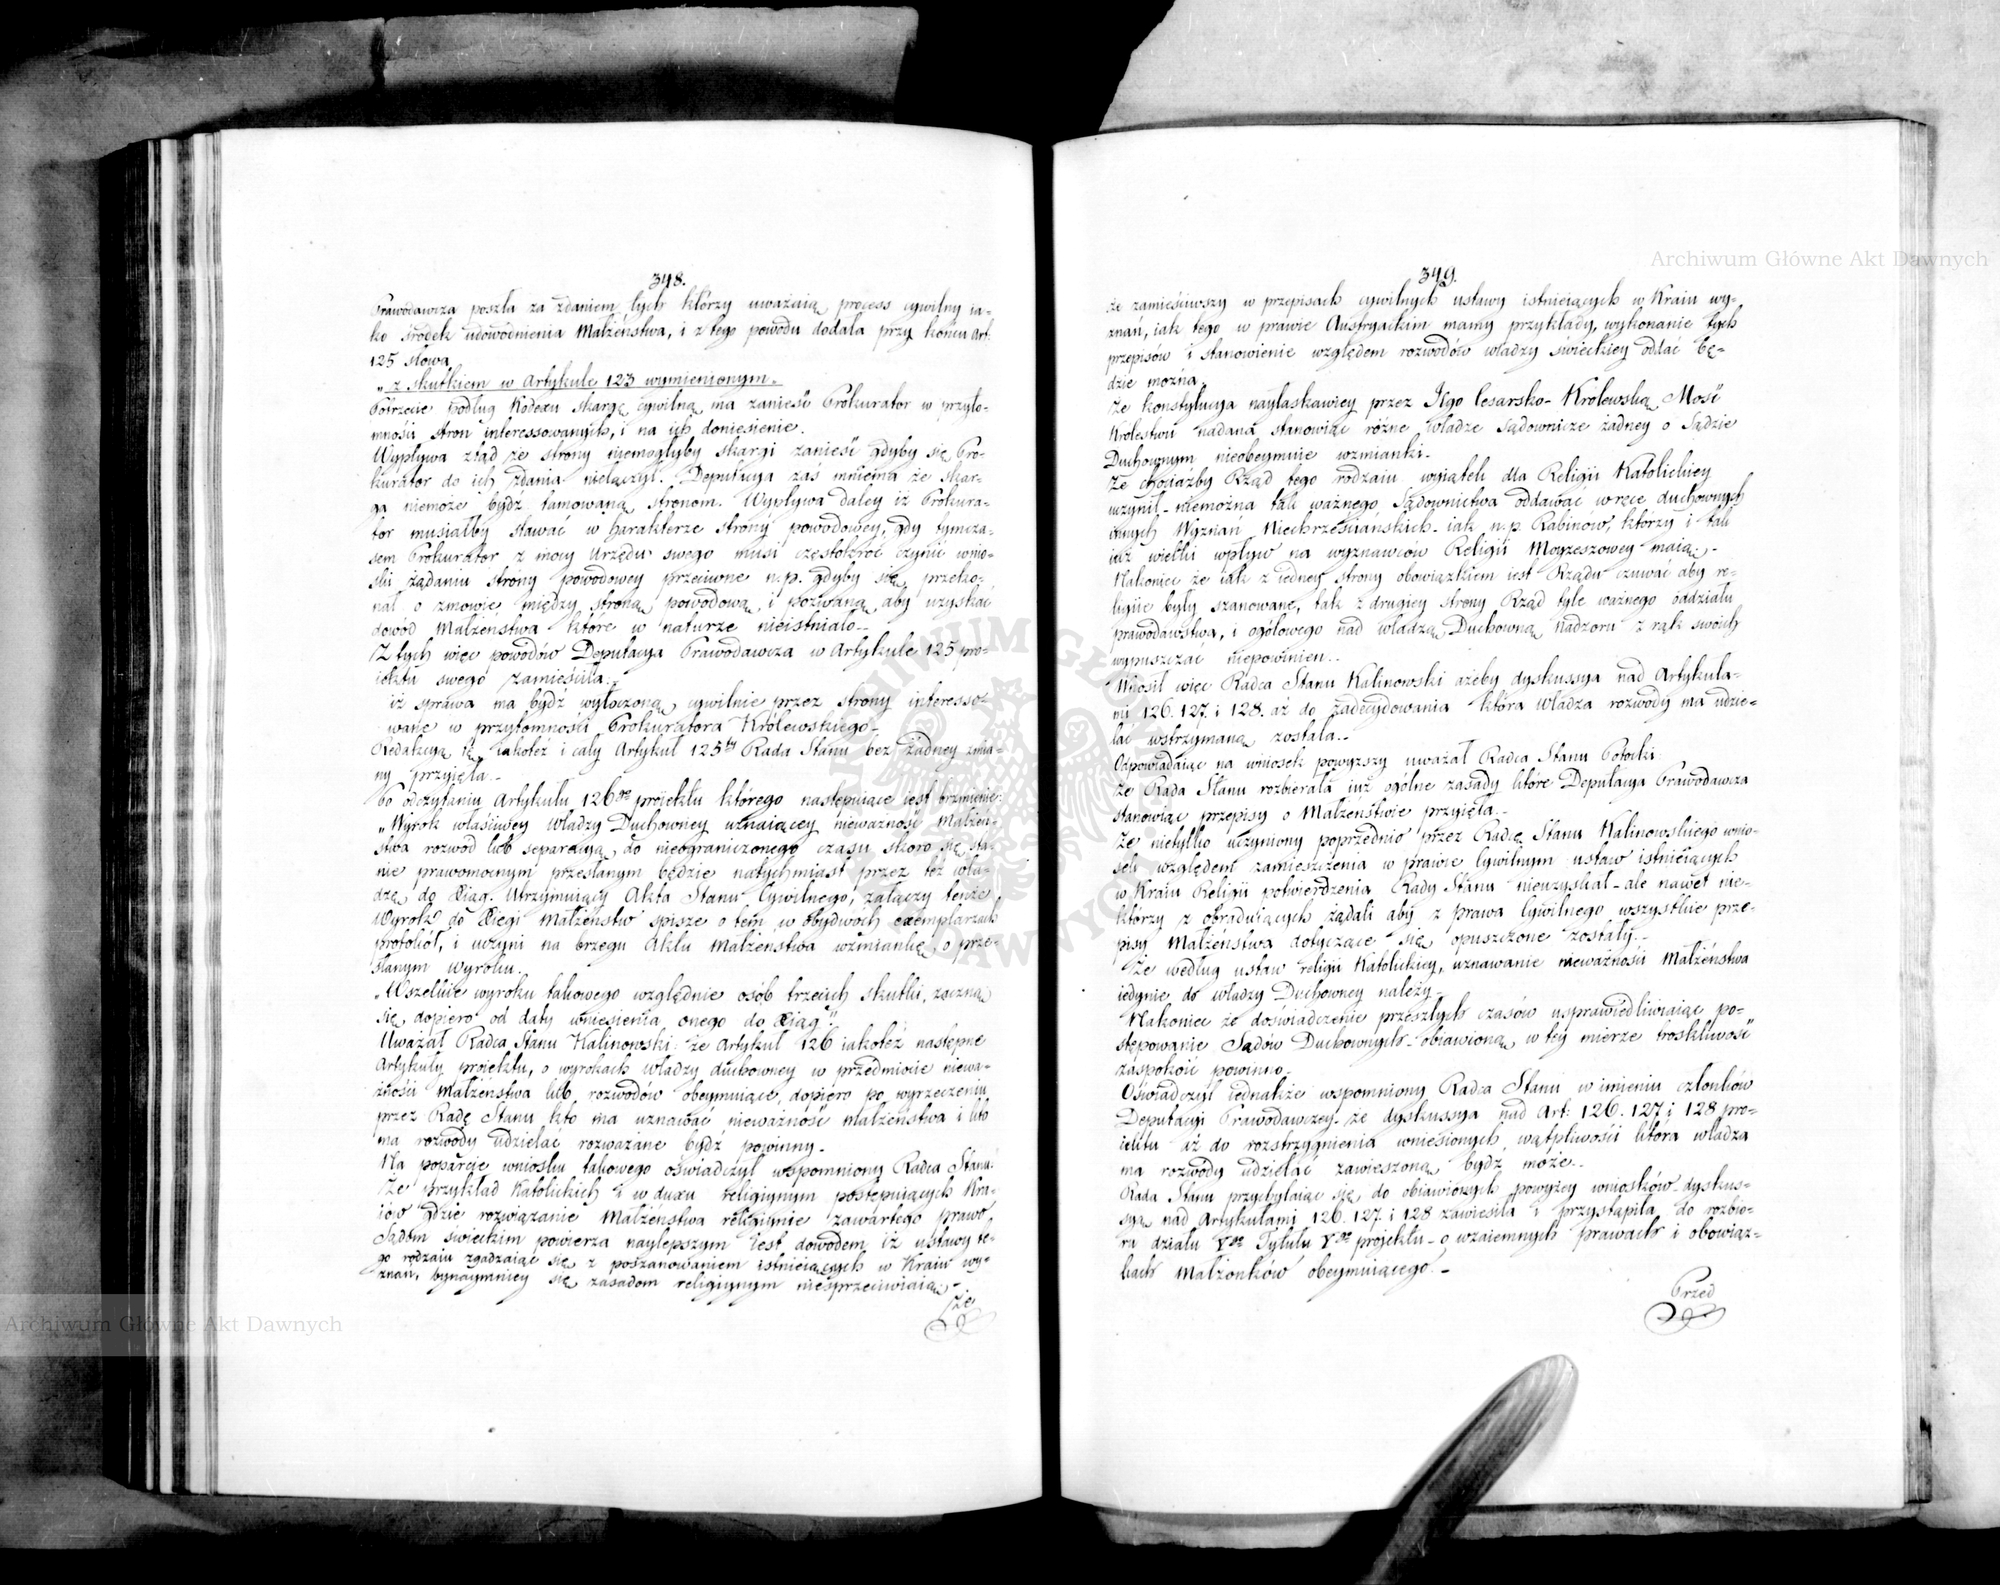 348.
Prawodawcza poszła za zdaniem tych którzy uważaią process cywilny ia-
ko środek udowodnienia Małżeństwa, i z tego powodu dodała przy końcu Art:
125 słowa
„z skutkiem w Artykule 123 wymienionym„
Potrzecie podług Kodexu skargę cywilną ma zanieść Prokurator w przyto-
mności stron interessowanych, i na ich doniesienie.
Wypływa ztąd że strony niemogłyby skargi zanieść gdyby się Pro-
kurator do ich zdania niełączył. Deputacya zaś mniema że skar-
ga niemoże bydź tamowaną stronom. Wypływa daley iż Prokura-
tor musiałby stawać w charakterze strony powodowey, gdy tymcza-
sem Prokurator z mocy Urzędu swego musi częstokroć czynić wnio-
ski żądaniu strony powodowey przeciwne n.p. gdyby się przeko-
nał o zmowie między stroną powodową i pozwaną, aby uzyskać
dowód Małżeństwa które w naturze nieistniało.-
Z tych więc powodów Deputacya Prawodawcza w Artykule 125 pro-
iektu swego zamieściła:
iż sprawa ma bydź wytoczoną cywilnie przez strony interesso-
wane w przytomności Prokuratora Królewskiego.-
Redakcyą tę iakoteż i cały Artykuł 125ty Rada Stanu bez żadney zmia-
ny przyięła.-
Po odczytaniu Artykułu 126go projektu którego następuiące iest brzmienie:
„Wyrok właściwey Władzy Duchowney uznaiącey nieważność Małżeń-
stwa rozwód lub separacyą do nieograniczonego czasu skoro się sta-
nie prawomocnym przesłanym będzie natychmiast przez też wła-
dzę do Xiąg. Utrzymuiący Akta Stanu Cywilnego, załączy tenże
Wyrok do Xięgi Małżeństw spisze o tem w obydwóch exemplarzach
protokół, i uczyni na brzegu Aktu Małżeństwa wzmiankę o prze-
słanym wyroku.
„Wszelkie wyroku takowego względnie osób trzecich skutki, zaczną
się dopiero od daty wniesienia onego do Xiąg".
Uważał Radca Stanu Kalinowski: że Artykuł 126 iakoteż następne
Artykuły projektu, o wyrokach Władzy duchowney w przedmiocie niewa-
żności Małżeństwa lub rozwodów obeymuiące, dopiero po wyrzeczeniu
przez Radę Stanu kto ma uznawać nieważność małżeństwa i kto
ma rozwody udzielać rozważane bydź powinny.-
Na poparcie wniosku takowego oświadczył wspomniony Radca Stanu:
Że przykład Katolickich i w duxu religiynym postępuiących Kra-
iów gdzie rozwiązanie Małżeństwa religiynie zawartego prawo
Sądom świeckim powierza naylepszym iest dowodem iż ustawy te-
go rodzaiu zgadzaiąc się z poszanowaniem istnieiących w Kraiu wy-
znań, bynaymniey się zasadom religiynym niesprzeciwiaią.-
Że
349.
że zamieściwszy w przepisach cywilnych ustawy istnieiących w Kraiu wy-
znań, iak tego w prawie Austryackim mamy przykłady, wykonanie tych
przepisów i stanowienie względem rozwodów władzy świeckiey oddać bę-
dzie można.
Że konstytucya nayłaskawiey przez Jego Cesarsko-Królewską Mość
Królestwu nadana stanowiąc różne władze sądownicze żadney o Sądzie
Duchownym nieobeymuie wzmianki.-
Że chociażby Rząd tego rodzaiu wyiątek dla Religii Katolickiey
uczynił - niemożna tak ważnego Sądownictwa oddawać w ręce duchownych
innych Wyznań Niechrześcianskich - iak n.p. Rabinów, którzy i tak
iuż wielki wpływ na wyznawców Religii Moyzeszowey maią.-
Nakoniec że iak z iedney strony obowiązkiem iest Rządu czuwać aby re-
ligiie były szanowane, tak z drugiey strony Rząd tyle ważnego oddziału
prawodawstwa, i ogólowego nad władzą Duchowną nadzoru z rąk swoich
wypuszczać niepowinien..
Wnosił więc Radca Stanu Kalinowski ażeby dyskussya nad Artykuła-
mi 126. 127. i 128. aż do zadecydowania która Władza rozwody ma udzie-
lać wstrzymaną została.-
Odpowiadaiąc na wniosek powyższy uważał Radca Stanu Potocki:
że Rada Stanu rozbierała iuż ogólne zasady które Deputacya Prawodawcza
stanowiąc przepisy o Małżeństwie przyięła.-
Że nietylko uczyniony poprzednio przez Radcę Stanu Kalinowskiego wnio-
sek względem zamieszczenia w prawie Cywilnym ustaw istnieiących
w Kraiu Religii potwierdzenia Rady Stanu nieuzyskał - ale nawet nie-
którzy z obraduiących żądali aby z prawa Cywilnego wszystkie prze-
pisy Małżeństwa dotyczące się opuszczone zostały.-
Że według ustaw religii Katolickiey, uznawanie nieważności Małżeństwa
iedynie do władzy Duchowney należy.-
Nakoniec że doświadczenie przeszłych czasów usprawiedliwiaiąc po-
stępowanie Sądów Duchownych - obiawioną w tey mierze troskliwość
zaspokoić powinno.-
Oświadczył iednakże wspomniony Radca Stanu w imieniu członków
Deputacyi Prawodawczey - że dyskussya nad Art: 126. 127 i 128 pro-
iektu aż do rozstrzygnienia wniesionych wątpliwości która władza
ma rozwody udzielać zawieszoną bydź może.-
Rada Stanu przychylaiąc się do obiawionych powyżey wniosków - dyskus-
syą nad Artykułami 126. 127. i 128 zawiesiła i przystąpiła do rozbio-
ru działu Vgo Tytułu Vgo projektu - o wzaiemnych prawach i obowiąz-
kach Małżonków obeymuiącego.-
Przed
Archiwum Główne Akt Dawnych
Archiwum Główne Akt Dawnych
ARCHIWUM GŁÓWNE AKT DAWNYCH